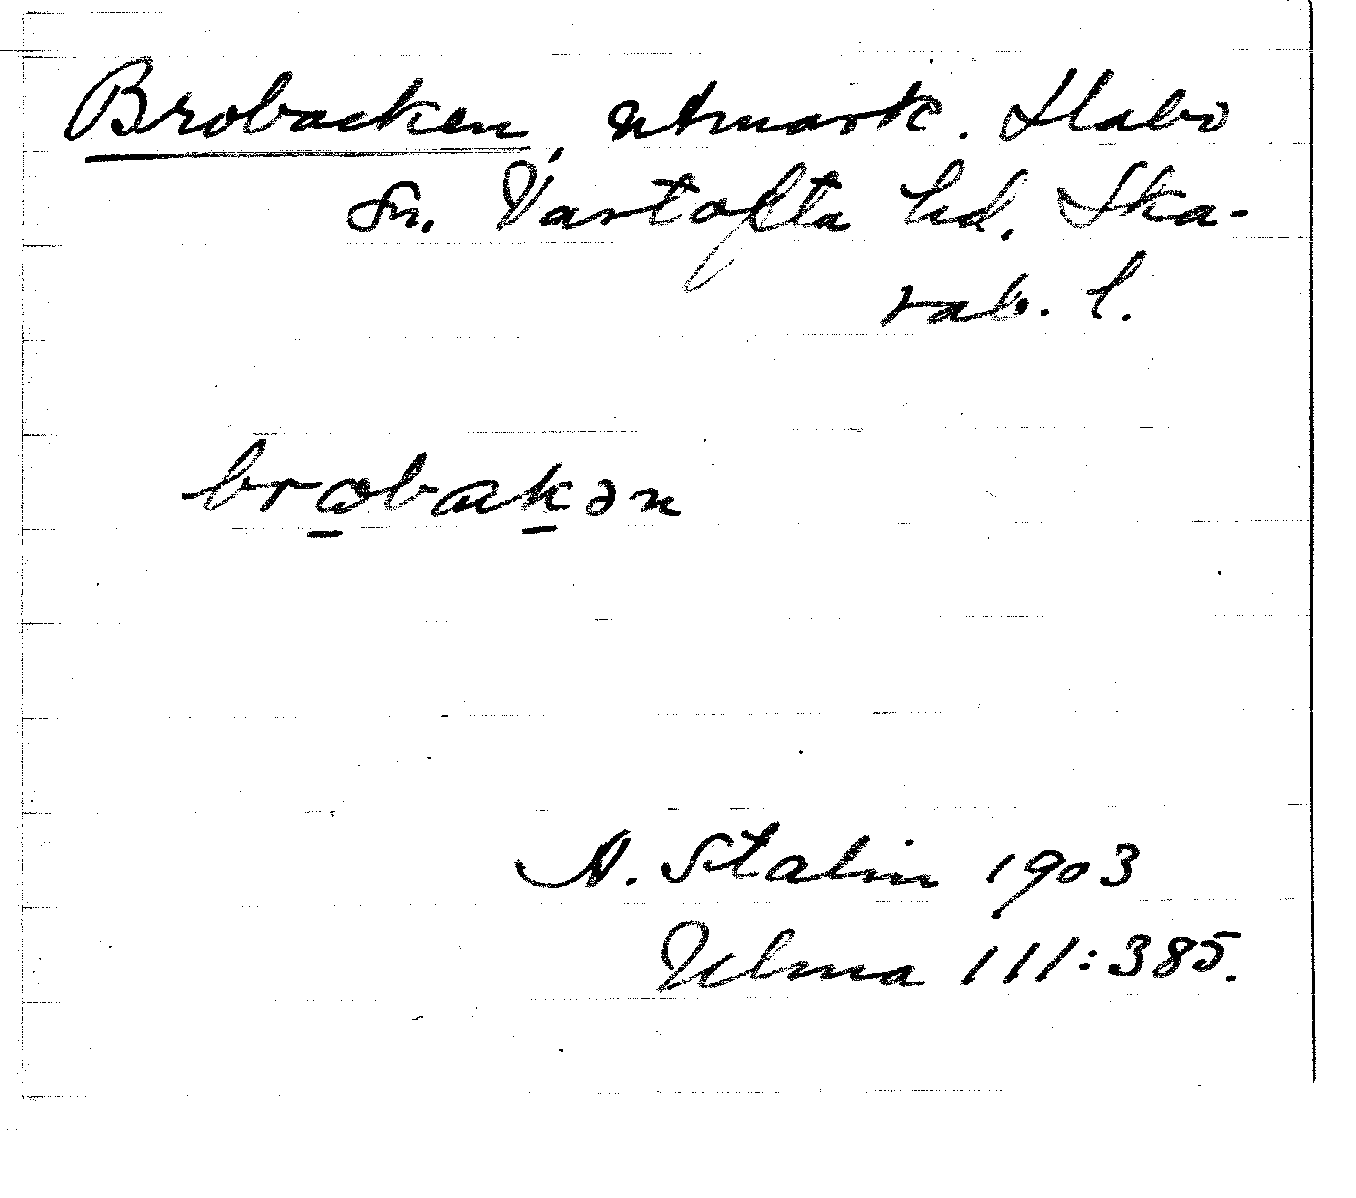 Brobacken, utmark. Habo
Sn. Vartofta hd. Ska-
rab. l.
brobakən
A. Stalin 1903
Ulma 111:385.